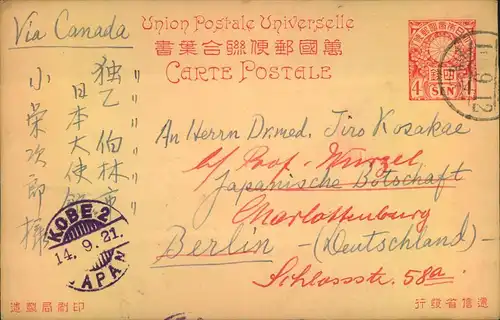 Via Canada
Union Postale Universelle
萬國郵便聯合葉書
CARTE POSTALE
4 SEN 4
独乙 伯林市
日本大使館
小栄次郎様
An Herrn Dr. med. Jiro Kosakae
b/ Prof. Wurzel
Japanische Botschaft
Charlottenburg
Berlin - (Deutschland) -
Schlossstr. 58a.
KOBE 2
14.9.21.
JAPAN
造製局刷印
行發省信遞